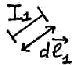 I₁
dℓ⃗₁